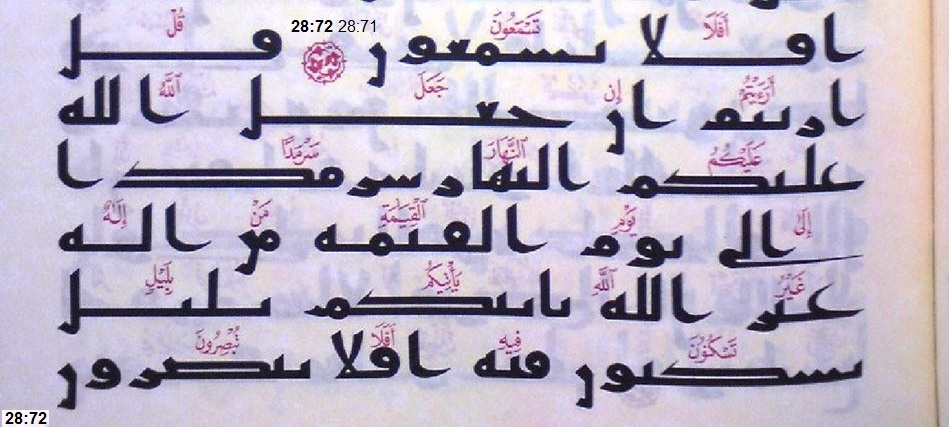 28:72 28:71
أَفَلَا تَسْمَعُونَ قُلْ
افلا تسمعون قل
أَرَءَيْتُمْ إِن جَعَلَ ٱللَّهُ
ارىتم ان جعل الله
عَلَيْكُمُ ٱلنَّهَارَ سَرْمَدًا
عليكم النهار سرمدا
إِلَىٰ يَوْمِ ٱلْقِيَٰمَةِ مَنْ إِلَٰهٌ
الى يوم القيمه من اله
غَيْرُ ٱللَّهِ يَأْتِيكُم بِلَيْلٍ
غير الله ياتيكم بليل
تَسْكُنُونَ فِيهِ أَفَلَا تُبْصِرُونَ
تسكنون فيه افلا تبصرون
28:72